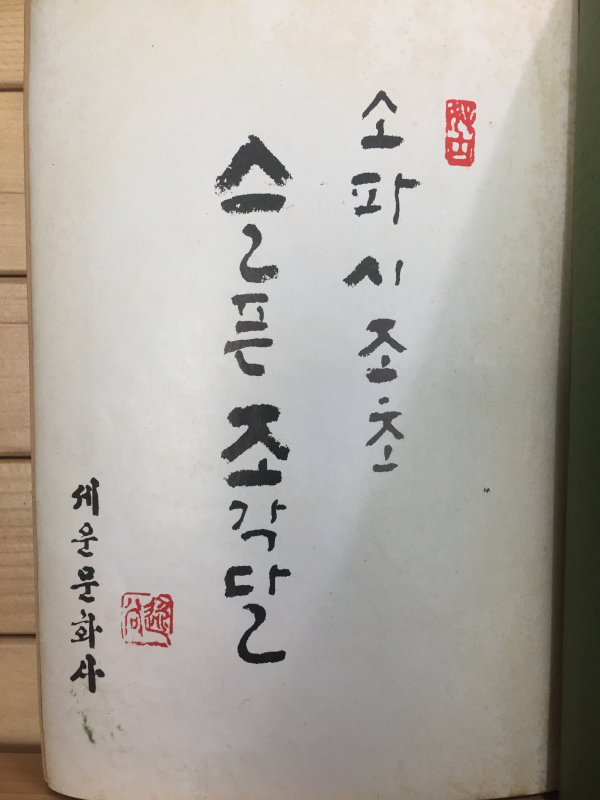 소파시조초
슬픈조각달
세운문화사